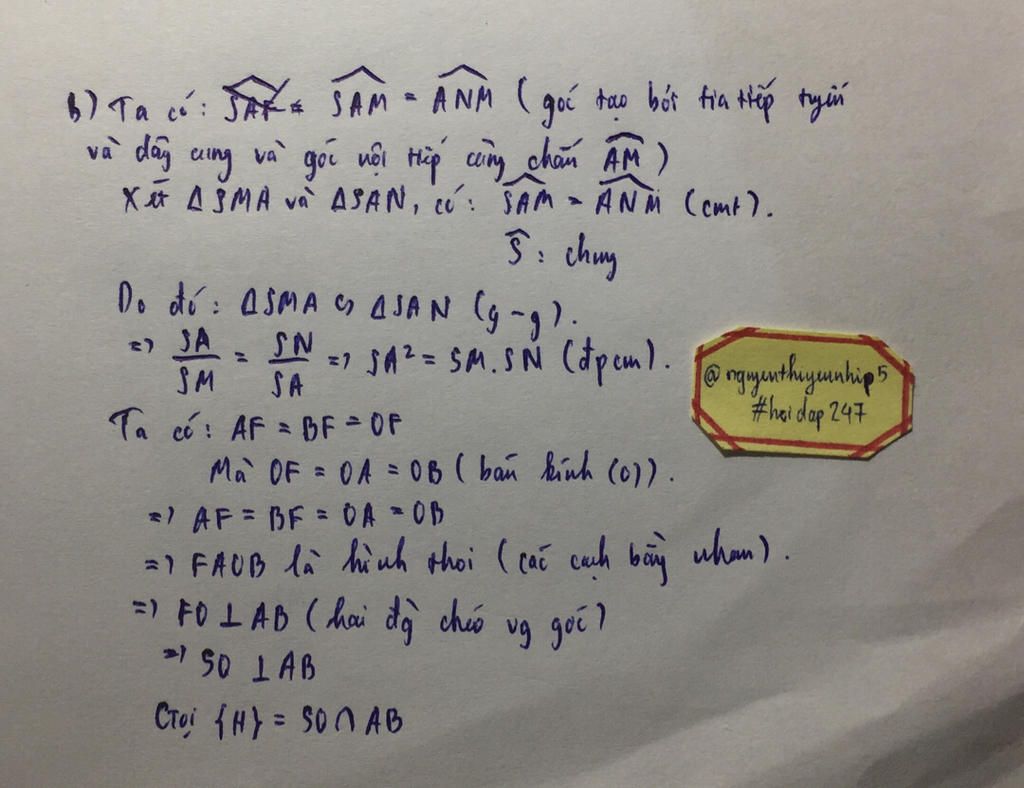 b) Ta có: SAF = SAM = ANM (góc tạo bởi tia tiếp tuyến
và dây cung và góc nội tiếp cùng chắn AM)
Xét ΔSMA và ΔSAN, có: SAM = ANM (cmt).
S: chung
Do đó: ΔSMA ∽ ΔSAN (g-g).
=> SA/SM = SN/SA => SA² = SM.SN (đpcm).
@nguyenthiyeunhip5
#hoidap247
Ta có: AF = BF = OF
Mà OF = OA = OB (bán kính (O)).
=> AF = BF = OA = OB
=> FAOB là hình thoi (các cạnh bằng nhau).
=> FO ⊥ AB (hai đg chéo vg góc)
=> SO ⊥ AB
Gọi {H} = SO ∩ AB